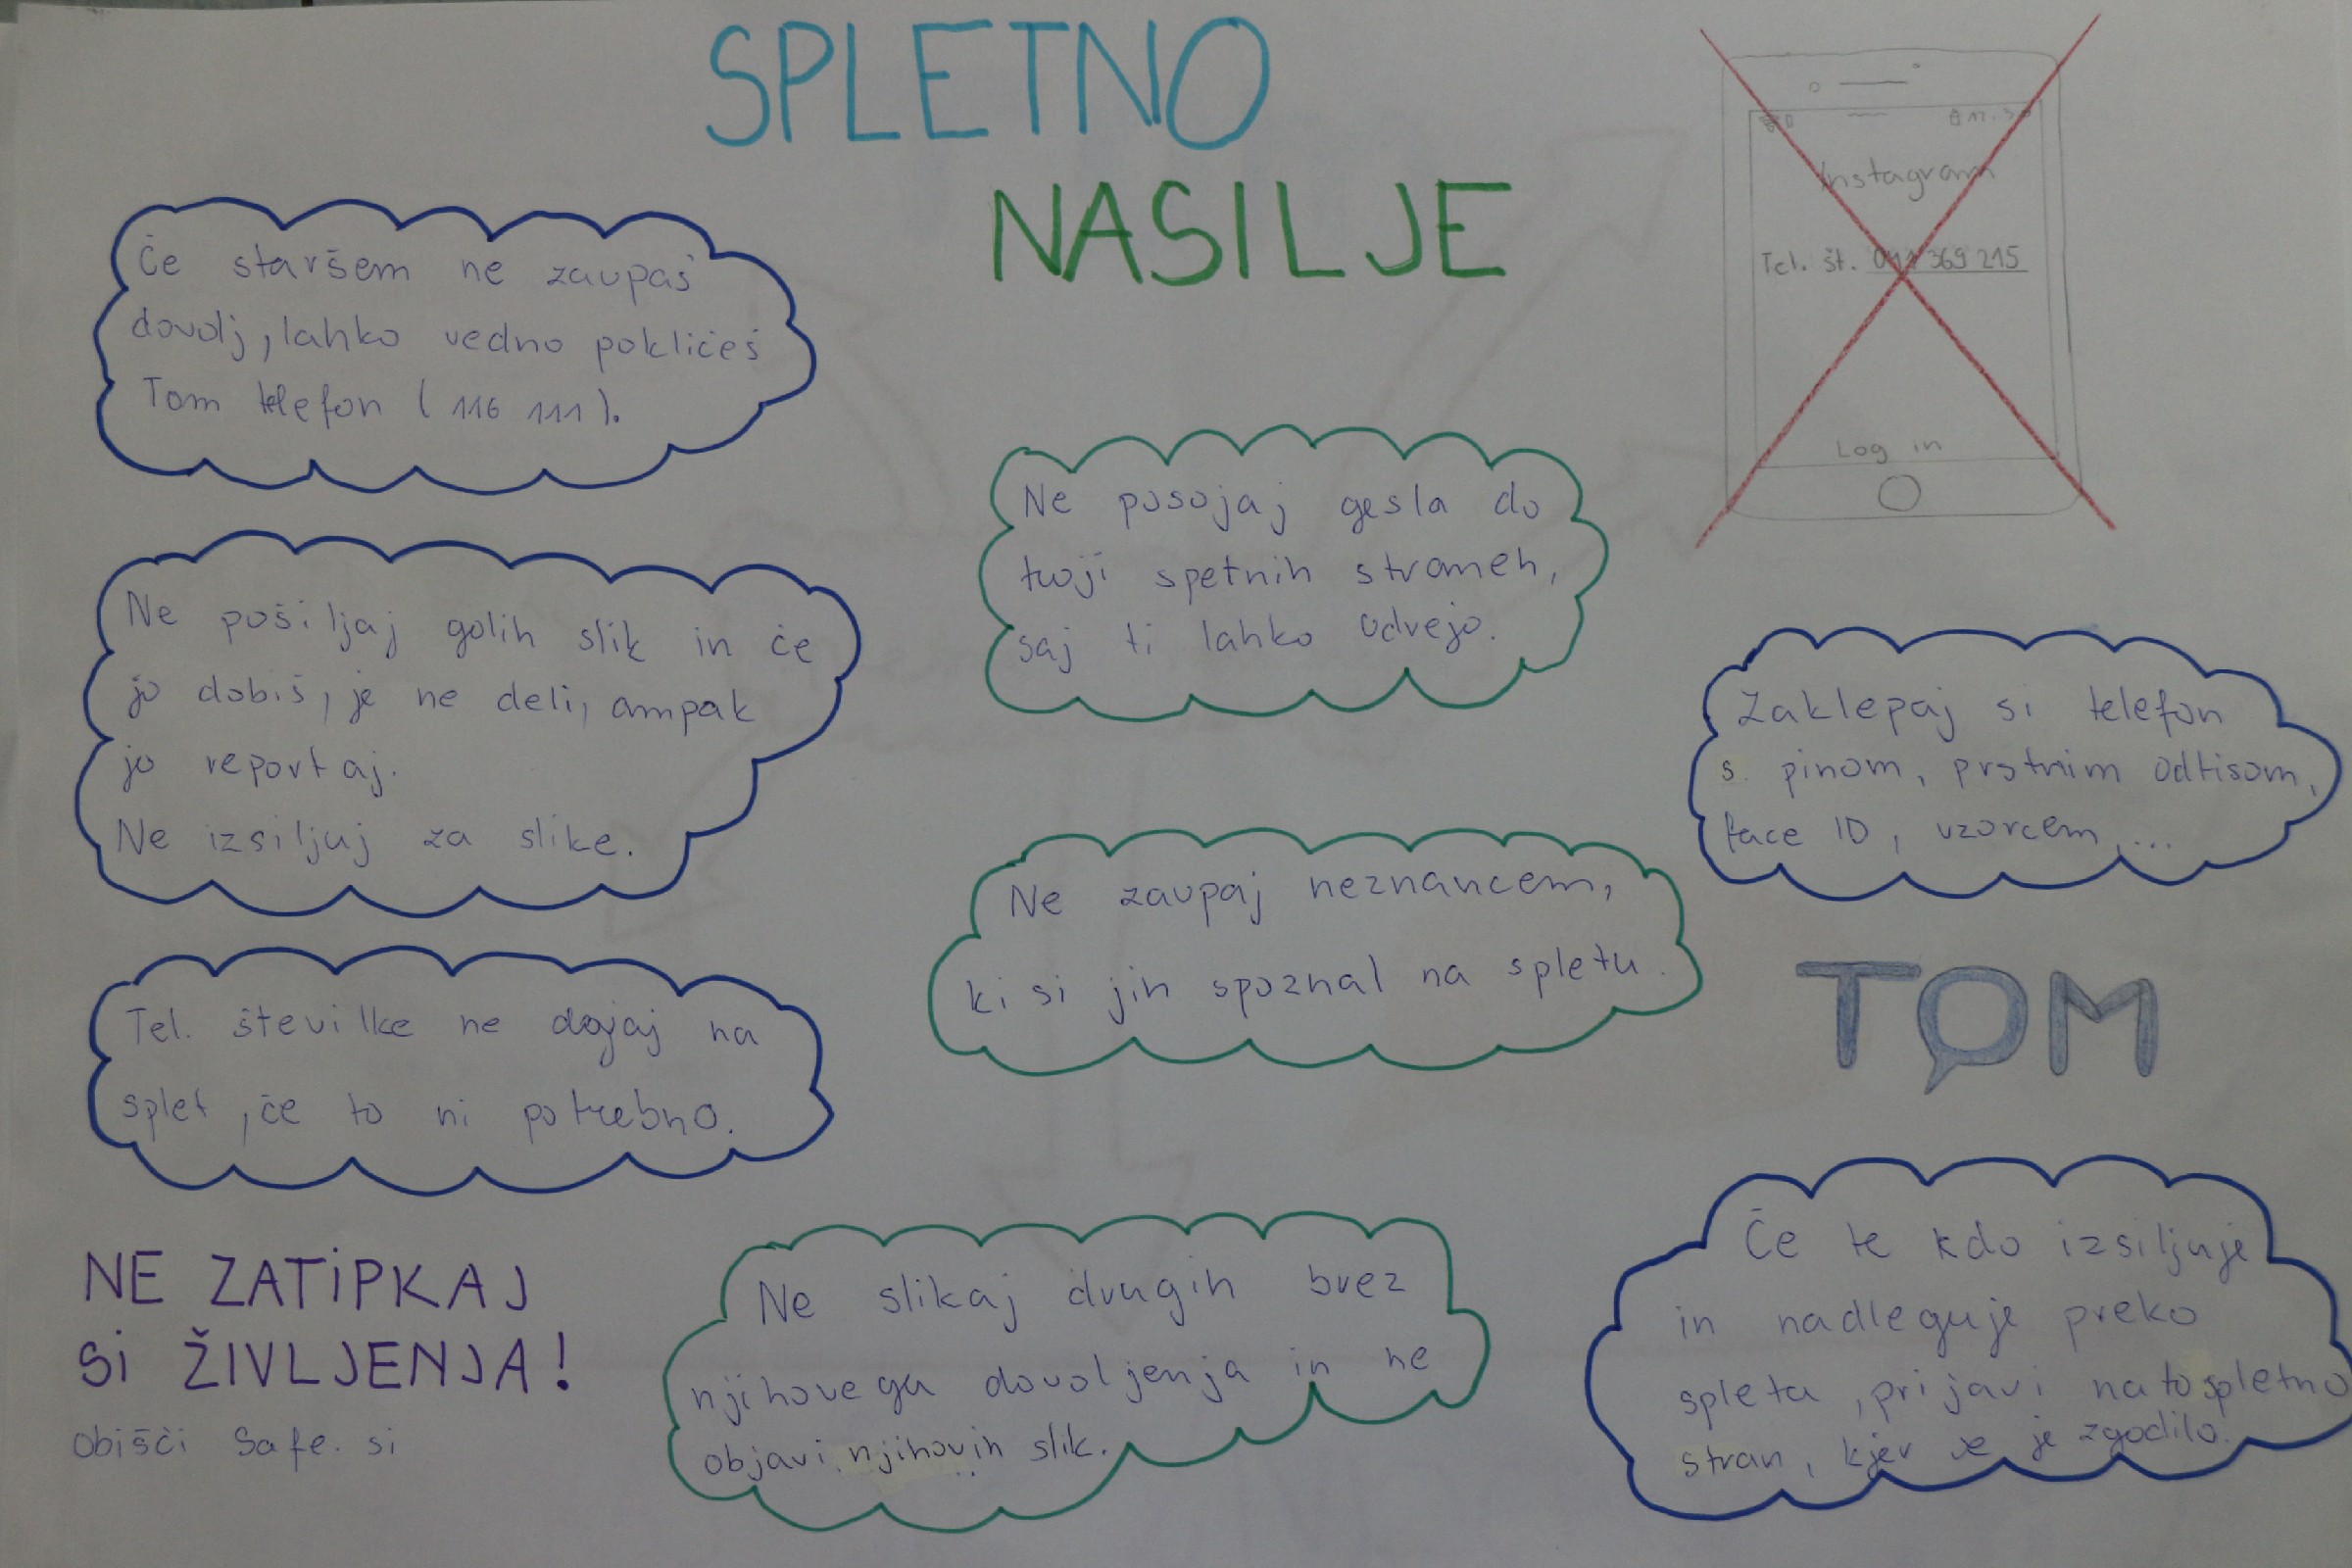 SPLETNO
NASILJE
Če staršem ne zaupaš
dovolj, lahko vedno pokličeš
Tom telefon (116 111).
Ne pošiljaj golih slik in če
jo dobiš, je ne deli, ampak
jo reportaj.
Ne izsiljuj za slike.
Tel. številke ne dajaj na
splet, če to ni potrebno.
NE ZATiPKAJ
Si ŽIVLJENJA!
Obišči Safe.si
Ne posojaj gesla do
tvoji spetnih strameh,
saj ti lahko vdrejo.
Ne zaupaj neznancem,
ki si jih spoznal na spletu.
Ne slikaj drugih brez
njihovega dovoljenja in ne
objavi njihovih slik.
Instagram
Tel. št. 041 369 215
Log in
Zaklepaj si telefon
s pinom, prstnim odtisom,
face ID, vzorcem,...
TOM
Če te kdo izsiljuje
in nadleguje preko
spleta, prijavi na to spletno
stran, kjer se je zgodilo.